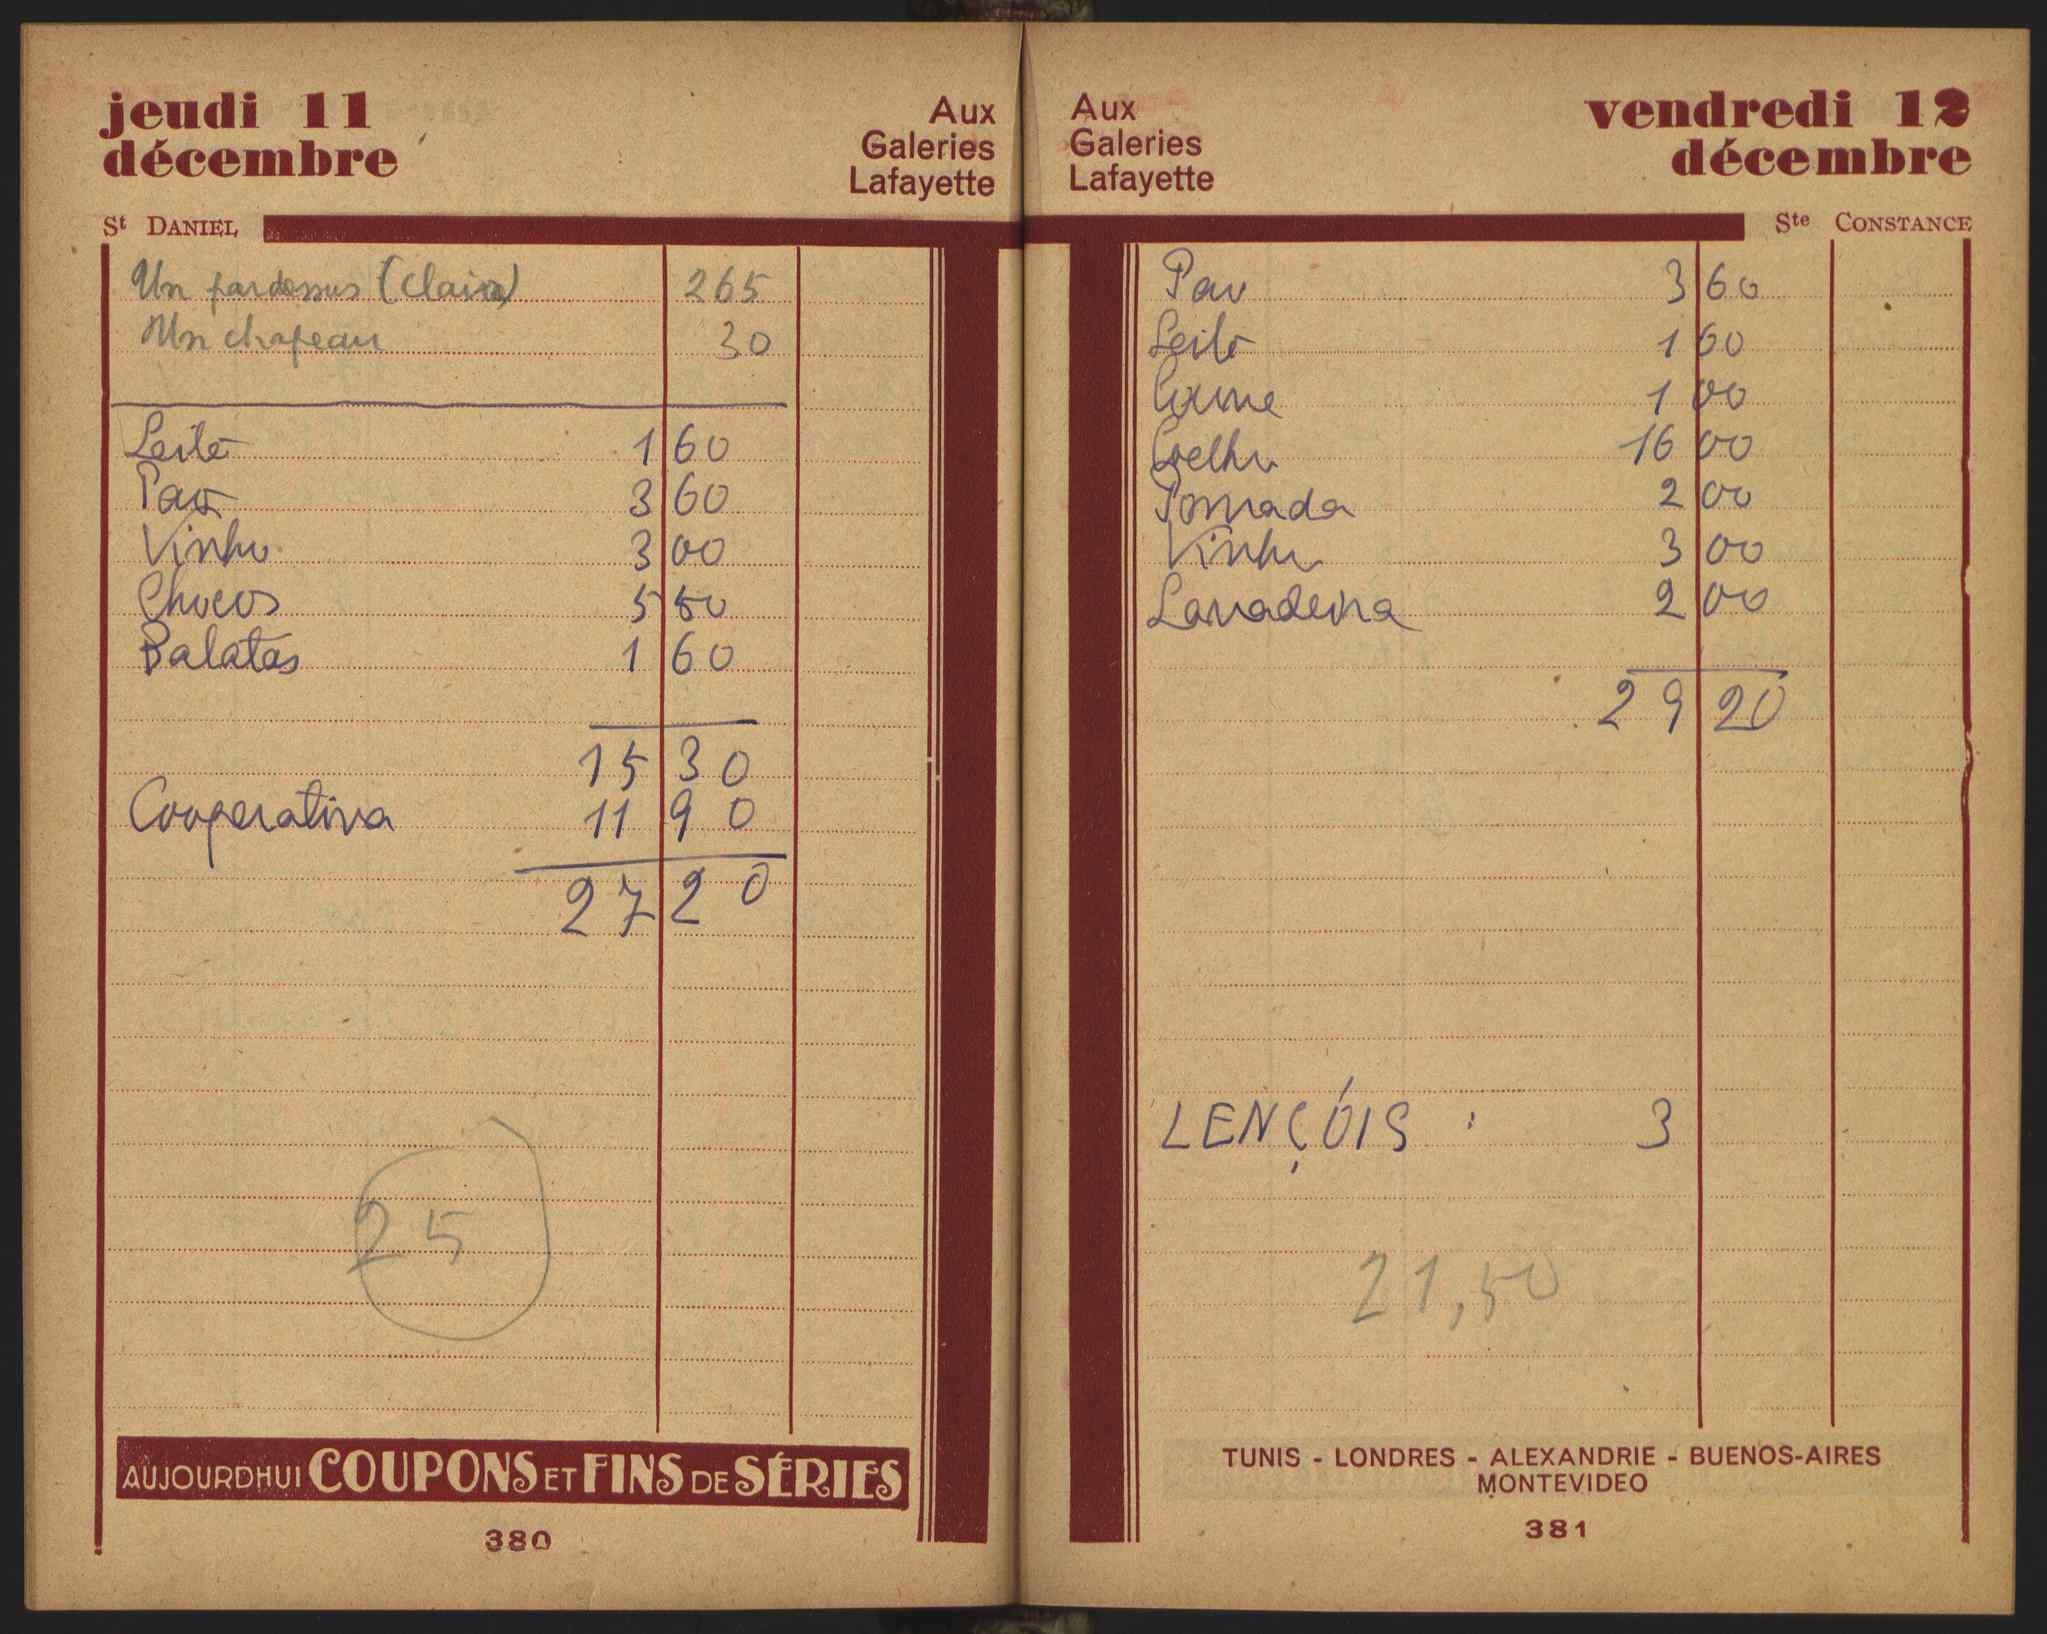 jeudi 11
décembre
Aux
Galeries
Lafayette
St DANIEL
Un pardessus (Clair) 265
Un chapeau 30
Leite 1 60
Pao 3 60
Vinho 3 00
Chocos 5 50
Batatas 1 60
15 30
Cooperativa 11 90
27 20
25
AUJOURDHUI COUPONS ET FINS DE SÉRIES
380
Aux
Galeries
Lafayette
vendredi 12
décembre
Ste CONSTANCE
Pao 3 60
Leite 1 60
Carne 1 00
Coelho 16 00
Pomada 2 00
Vinho 3 00
Lavadeira 2 00
29 20
LENÇÓIS : 3
21,50
TUNIS - LONDRES - ALEXANDRIE - BUENOS-AIRES
MONTEVIDEO
381